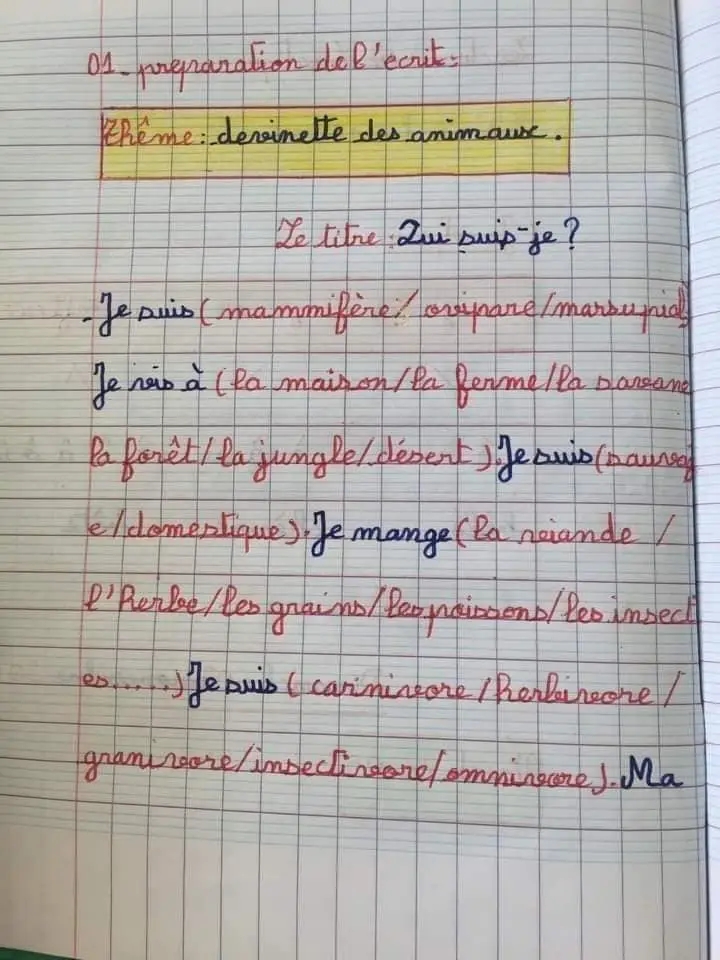 01_preparation de l'ecrit:
thême: devinette des animaux.
Le titre: Qui suis-je?
- Je suis (mammifère/ ovipare/marsupial
Je vis à (la maison/la ferme/la savane
la forêt/la jungle/désert). Je suis (sauvag
e/domestique). Je mange (la viande /
l'herbe/les grains/les poissons/les insect
es.....) Je suis ( carnivore/herbivore/
granivore/insectivore/omnivore). Ma